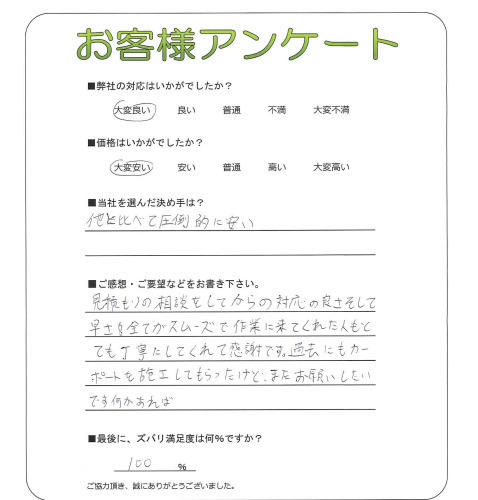 お客様アンケート
■弊社の対応はいかがでしたか？
大変良い 良い 普通 不満 大変不満
■価格はいかがでしたか？
大変安い 安い 普通 高い 大変高い
■当社を選んだ決め手は？
他と比べて圧倒的に安い
■ご感想・ご要望などをお書き下さい。
見積もりの相談をしてからの対応の良さそして
早さも全てがスムーズで作業に来てくれた人もと
ても丁寧にしてくれて感謝です。過去にもカー
ポートを施工してもらったけど、またお願いしたい
です何かあれば
■最後に、ズバリ満足度は何％ですか？
100 ％
ご協力頂き、誠にありがとうございました。